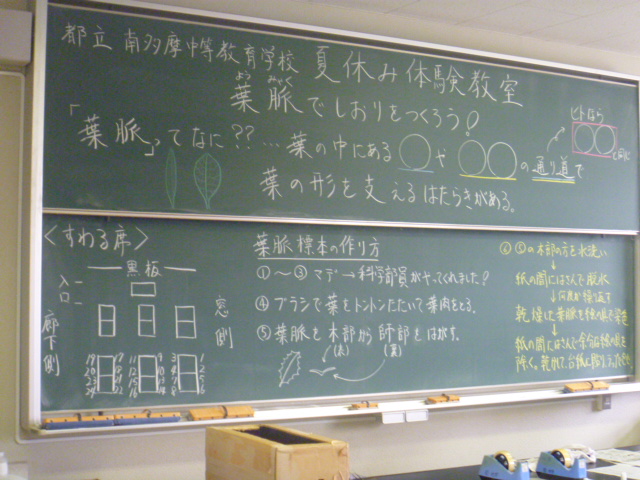 都立 南多摩中等教育学校 夏休み体験教室
よう みゃく
葉脈でしおりをつくろう!
「葉脈」ってなに?? … 葉の中にある ◯や ◯◯の通り道で
ヒトなら
と同じ
葉の形を支えるはたらきがある。
<すわる席>
黒板
入口
廊下側
窓側
葉脈標本の作り方
①〜③マデ→科学部員がやってくれました!
④ブラシで葉をトントンたたいて葉肉をとる。
⑤葉脈を木部から師部をはがす。
(太)
(裏)
⑥ ⑤の木部の方を水洗い
↓
紙の間にはさんで脱水
↓ 何回か繰り返す
乾燥した葉脈を
↓
紙の間にはさんで余分な
除く。乾かして、台紙に貼り、